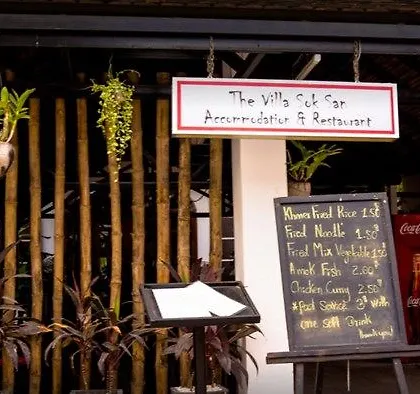 The Villa Sok San
Accommodation & Restaurant
Khmer Fried Rice 1.50
Fried Noodle 1.50
Fried Mix Vegetable 1.50
Amok Fish 2.00
Chicken Curry 2.00
* Pool Service 3$ with
one soft Drink
Thank you
Coca